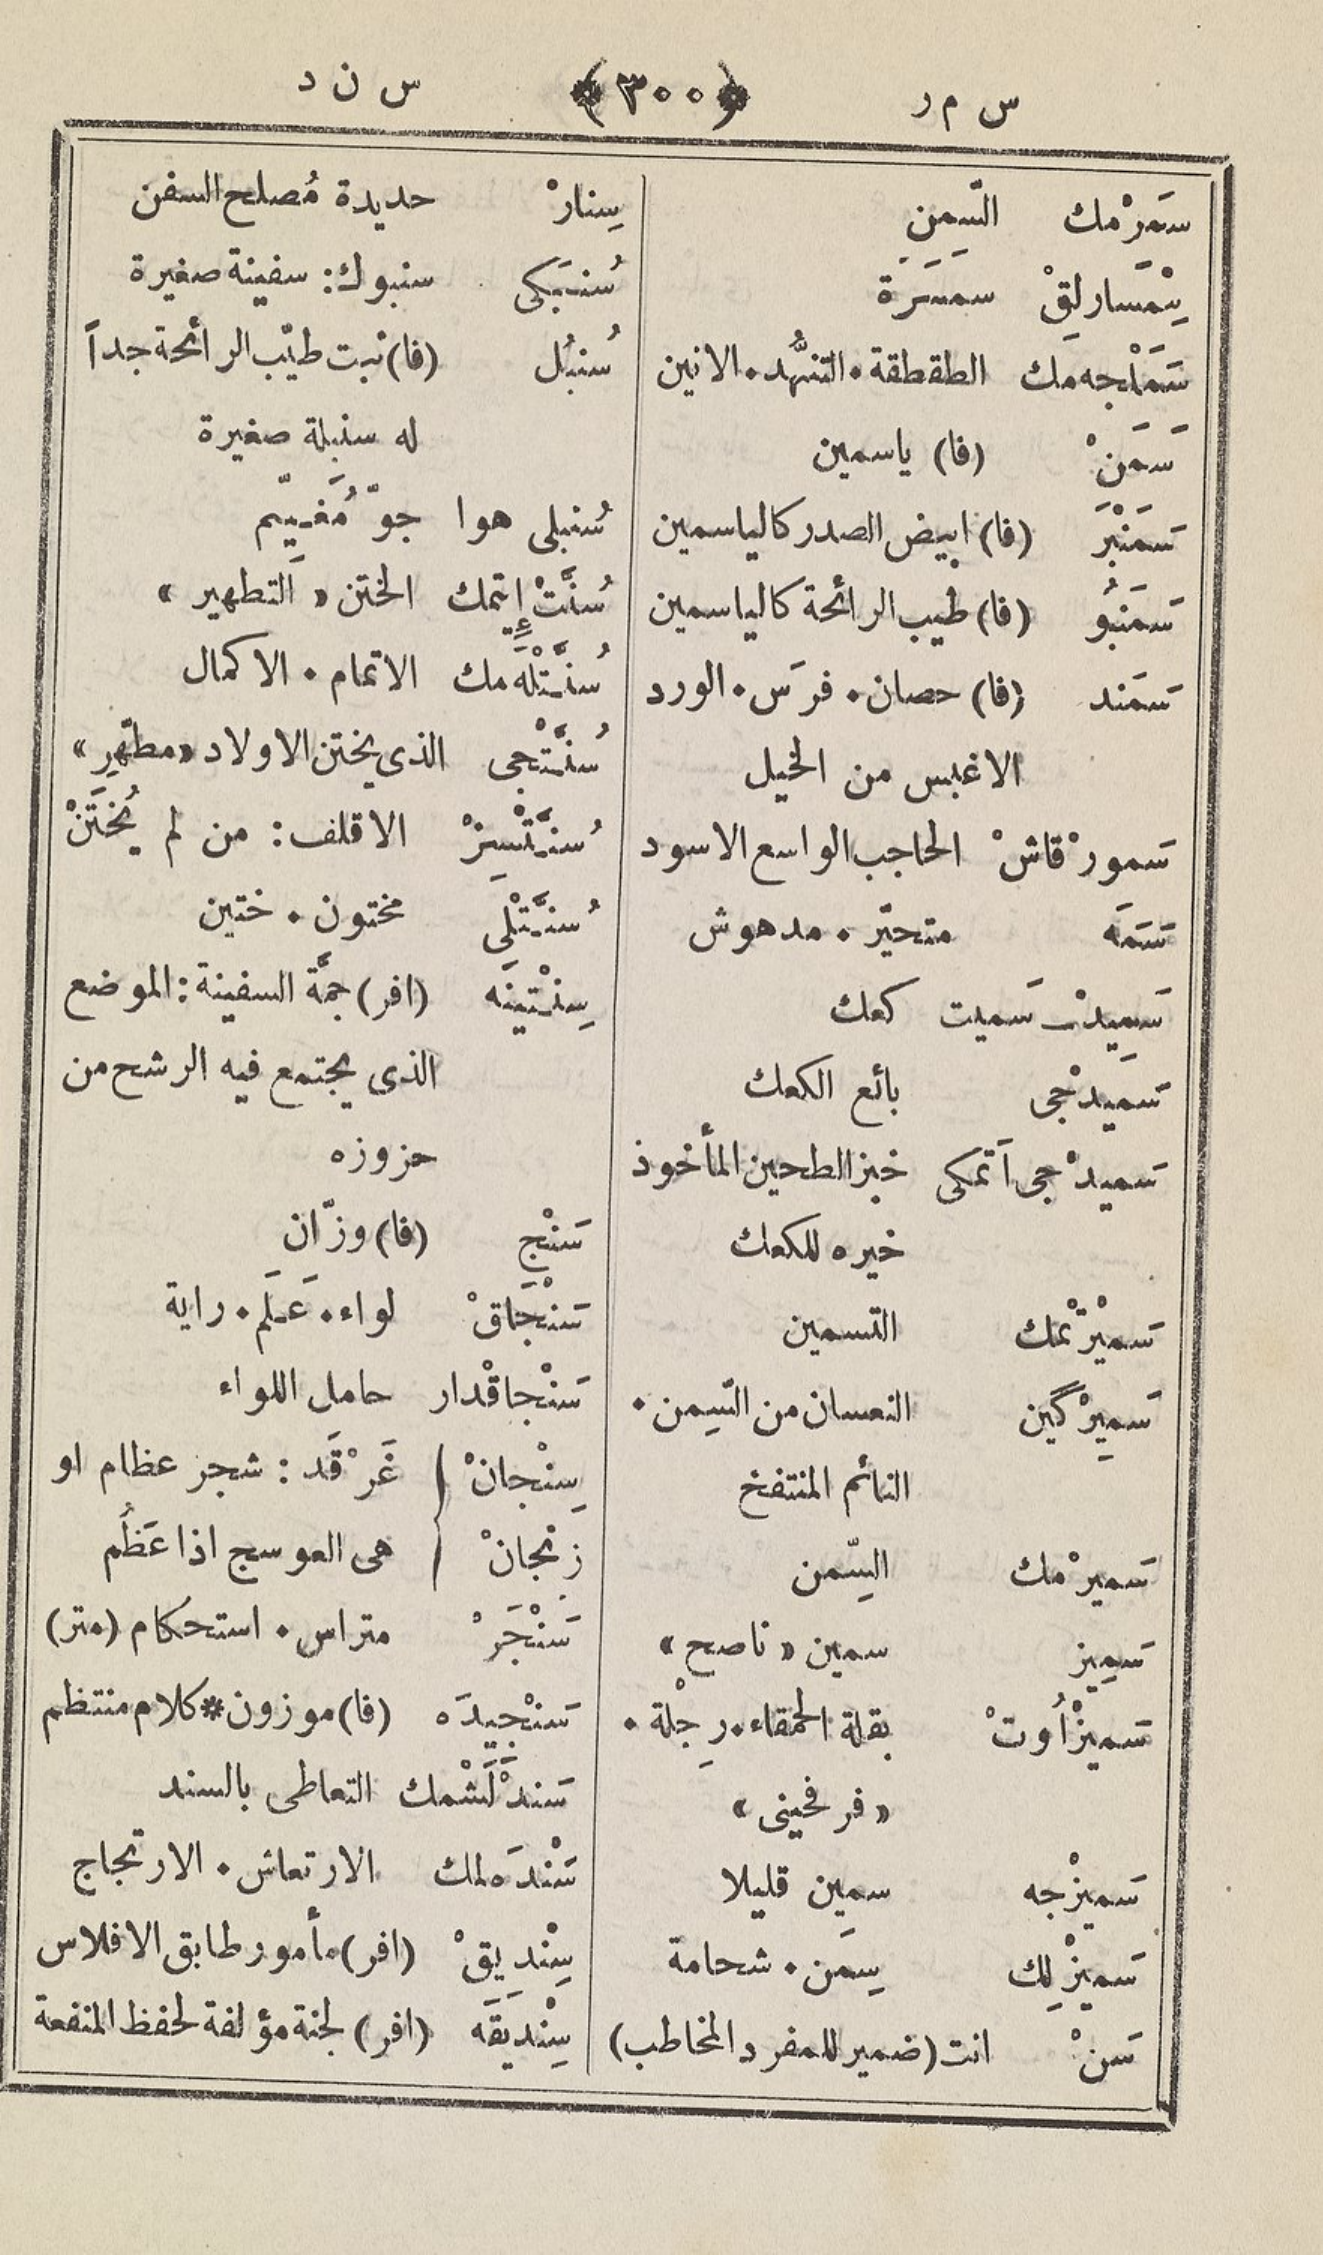 س م ر ﴿٣٠٠﴾ س ن د
سَمَرْمك السِّمَن
سِمْسَارلِقْ سمسَرَة
سَمَلْجه مَك الطقطقة ٠ التنهُّد ٠ الانين
سَمَنْ (فا) ياسمين
سَمَنْبَرَ (فا) ابيض الصدر كالياسمين
سَمَنبُو (فا) طيب الرائحة كالياسمين
سَمَند (فا) حصان ٠ فرَس ٠ الورد
الاغبس من الخيل
سَمورْ قاشْ الحاجب الواسع الاسود
سَمَه متحيّر ٠ مدهوش
سَمِيدْ ـ سَميت كعك
سَمَيدْجى بائع الكعك
سَميدْجى اَتمكى خبز الطحين المأخوذ
خيره للكعك
سَميْرْتمْك التسمين
سَمِيرْگين النعسان من السِّمن ٠
النائم المنتفخ
سَميرْمك السِّمن
سَمِيز سمين « ناصح »
سَميزْاُوتْ بقلة الحمقاء ٠ رِجْلة ٠
« فرفحينى »
سَميزْجه سمين قليلا
سَميزْلِك سِمَن ٠ شحامة
سَنْ انت (ضمير للمفرد المخاطب)
سِنارْ حديدة مُصلح السفن
سُنبَكى سنبوك : سفينة صغيرة
سُنبُل (فا) نبت طيّب الرائحة جداً
له سنبلة صغيرة
سُنبلى هوا جوّ مُغَيّم
سُنَّتْ إِيتمك الختن « التطهير »
سُنَّتْلَه مك الاتمام ٠ الاكمال
سُنَّتْجى الذى يختن الاولاد « مطهّر »
سُنَّتْسِزْ الاقلف : من لم يُختَنْ
سُنَّتْلى مختون ٠ ختين
سِنْتينَه (افر) جمَّة السفينة : الموضع
الذى يجتمع فيه الرشح من
حزوزه
سَنْج (فا) وزّان
سَنْجَاقْ لواء ٠ عَلَم ٠ راية
سَنْجاقْدار حامل اللواء
سِنْجانْ ) غَرْقَد : شجر عظام او
زنجانْ ) هى العوسج اذا عَظُم
سَنْجَرْ متراس ٠ استحكام (متر)
سَنْجيدَه (فا) موزون * كلام منتظم
سَندْلَشْمك التعاطى بالسند
سَنْدَه لمك الارتعاش ٠ الارتجاج
سِنْديقْ (افر) مأمور طابق الافلاس
سِنْديَقَه (افر) لجنة مؤلفة لحفظ المنفعة